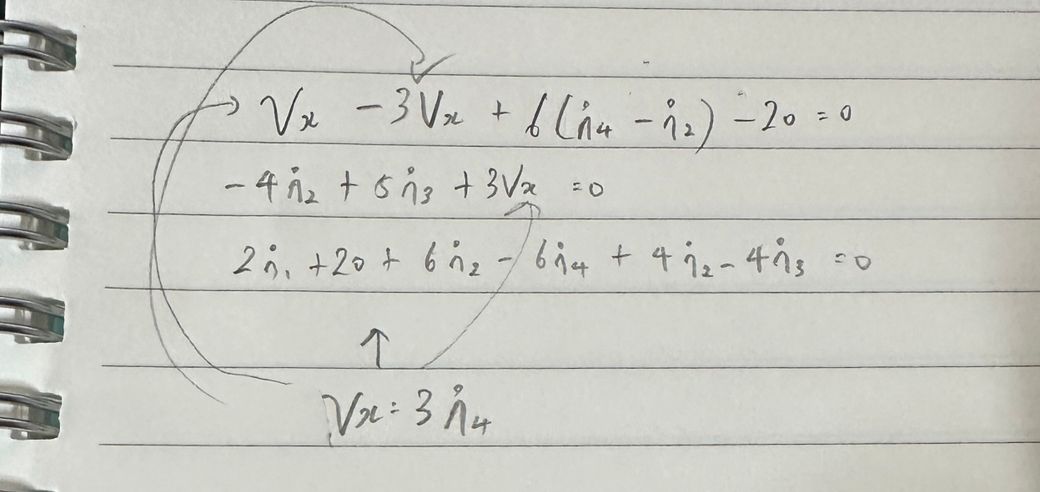 Vx - 3Vx + 6(i4 - i2) - 20 = 0
-4i2 + 5i3 + 3Vx = 0
2i1 + 20 + 6i2 - 6i4 + 4i2 - 4i3 = 0
Vx = 3i4